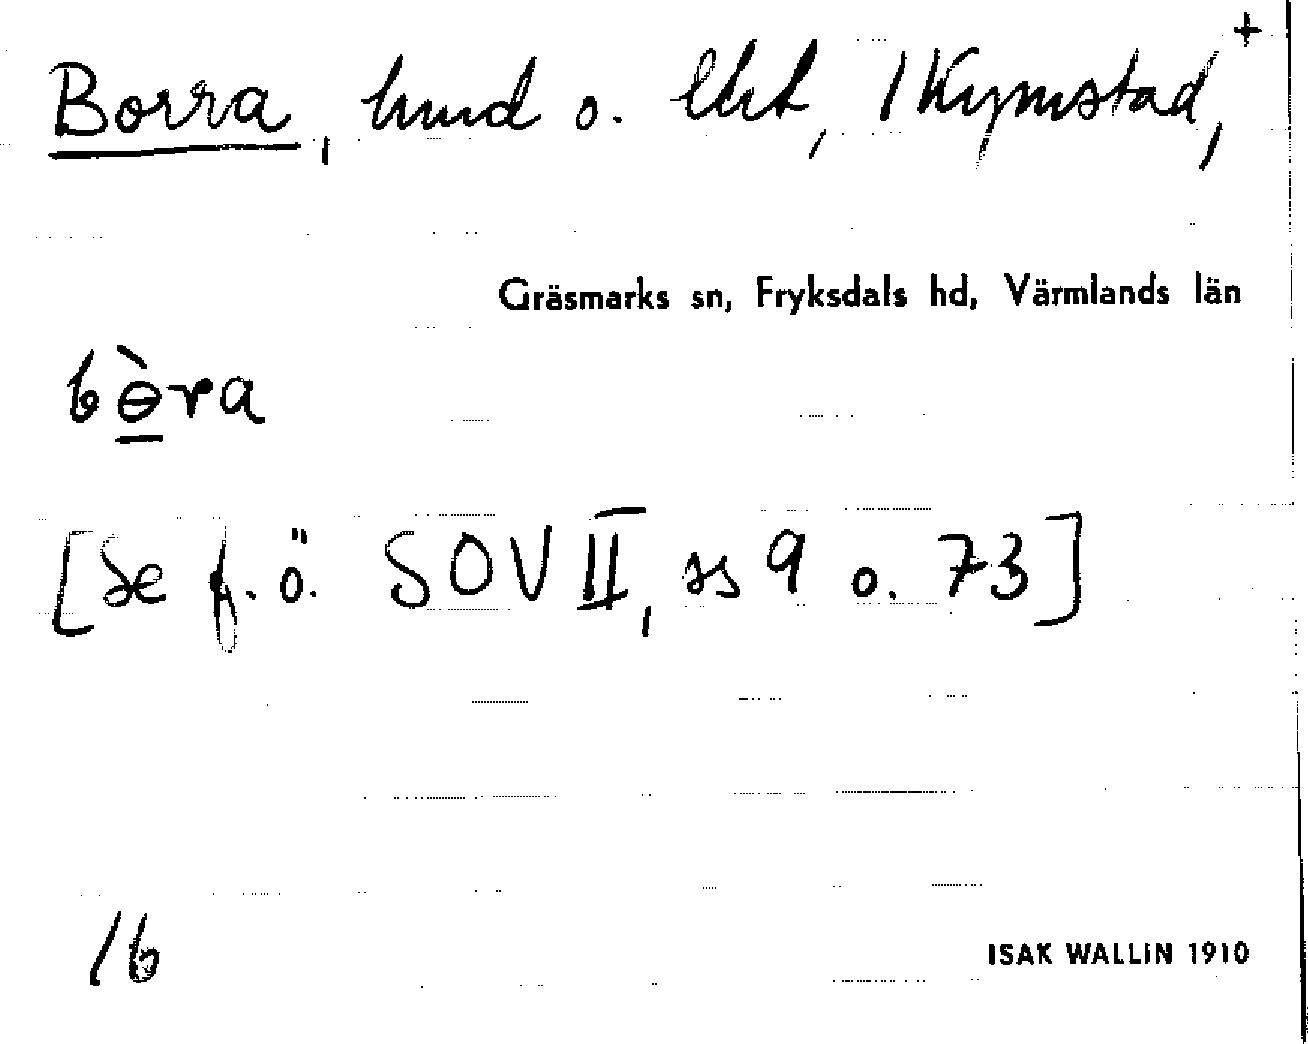 +
Borra, hmd o. lht, 1 Kymstad,
Gräsmarks sn, Fryksdals hd, Värmlands län
bɵ̀ra
[Se f. ö. SOV II, ss 9 o. 73]
16
ISAK WALLIN 1910